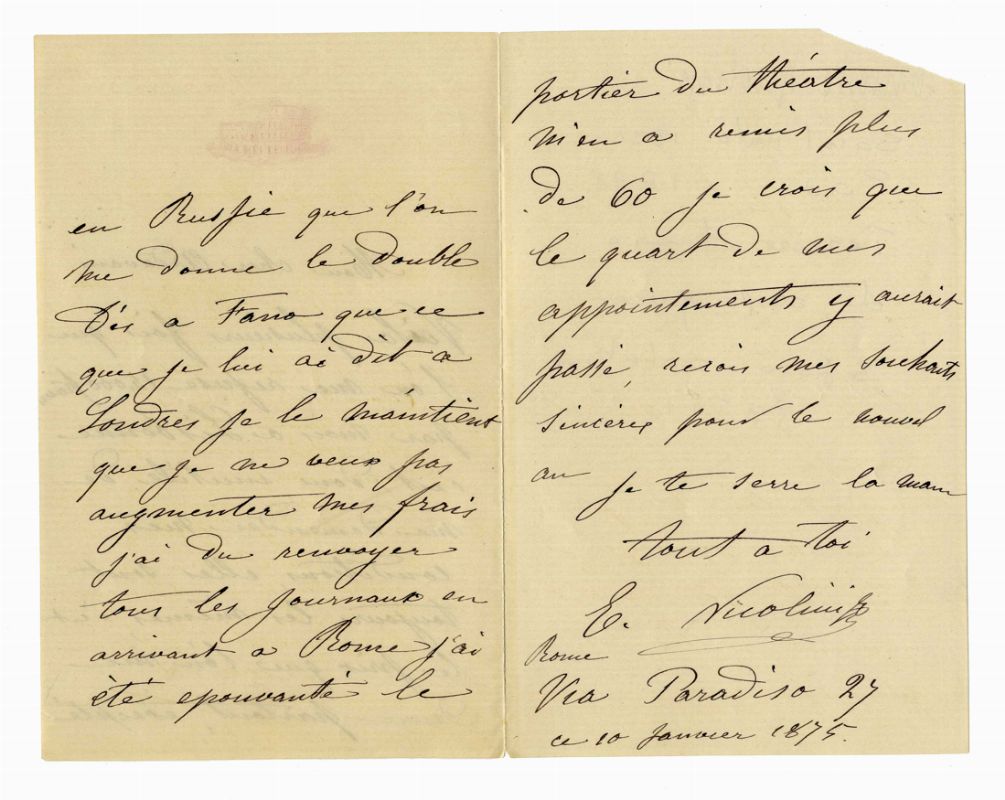 en Russie que l'on
me donne le double
Dis a Fano que ce
que je lui ai dit a
Londres je le maintient
que je ne veux pas
augmenter mes frais
j'ai du renvoyer
tous les journaux en
arrivant a Rome j'ai
été epouvanté le
portier du théatre
m'en a remis plus
de 60 je crois que
le quart de mes
appointements y aurait
passé, recois mes souhaits
sincères pour le nouvel
an je te serre la main
tout a toi
E. Nicolini
Rome
Via Paradiso 27
ce 10 Janvier 1875.